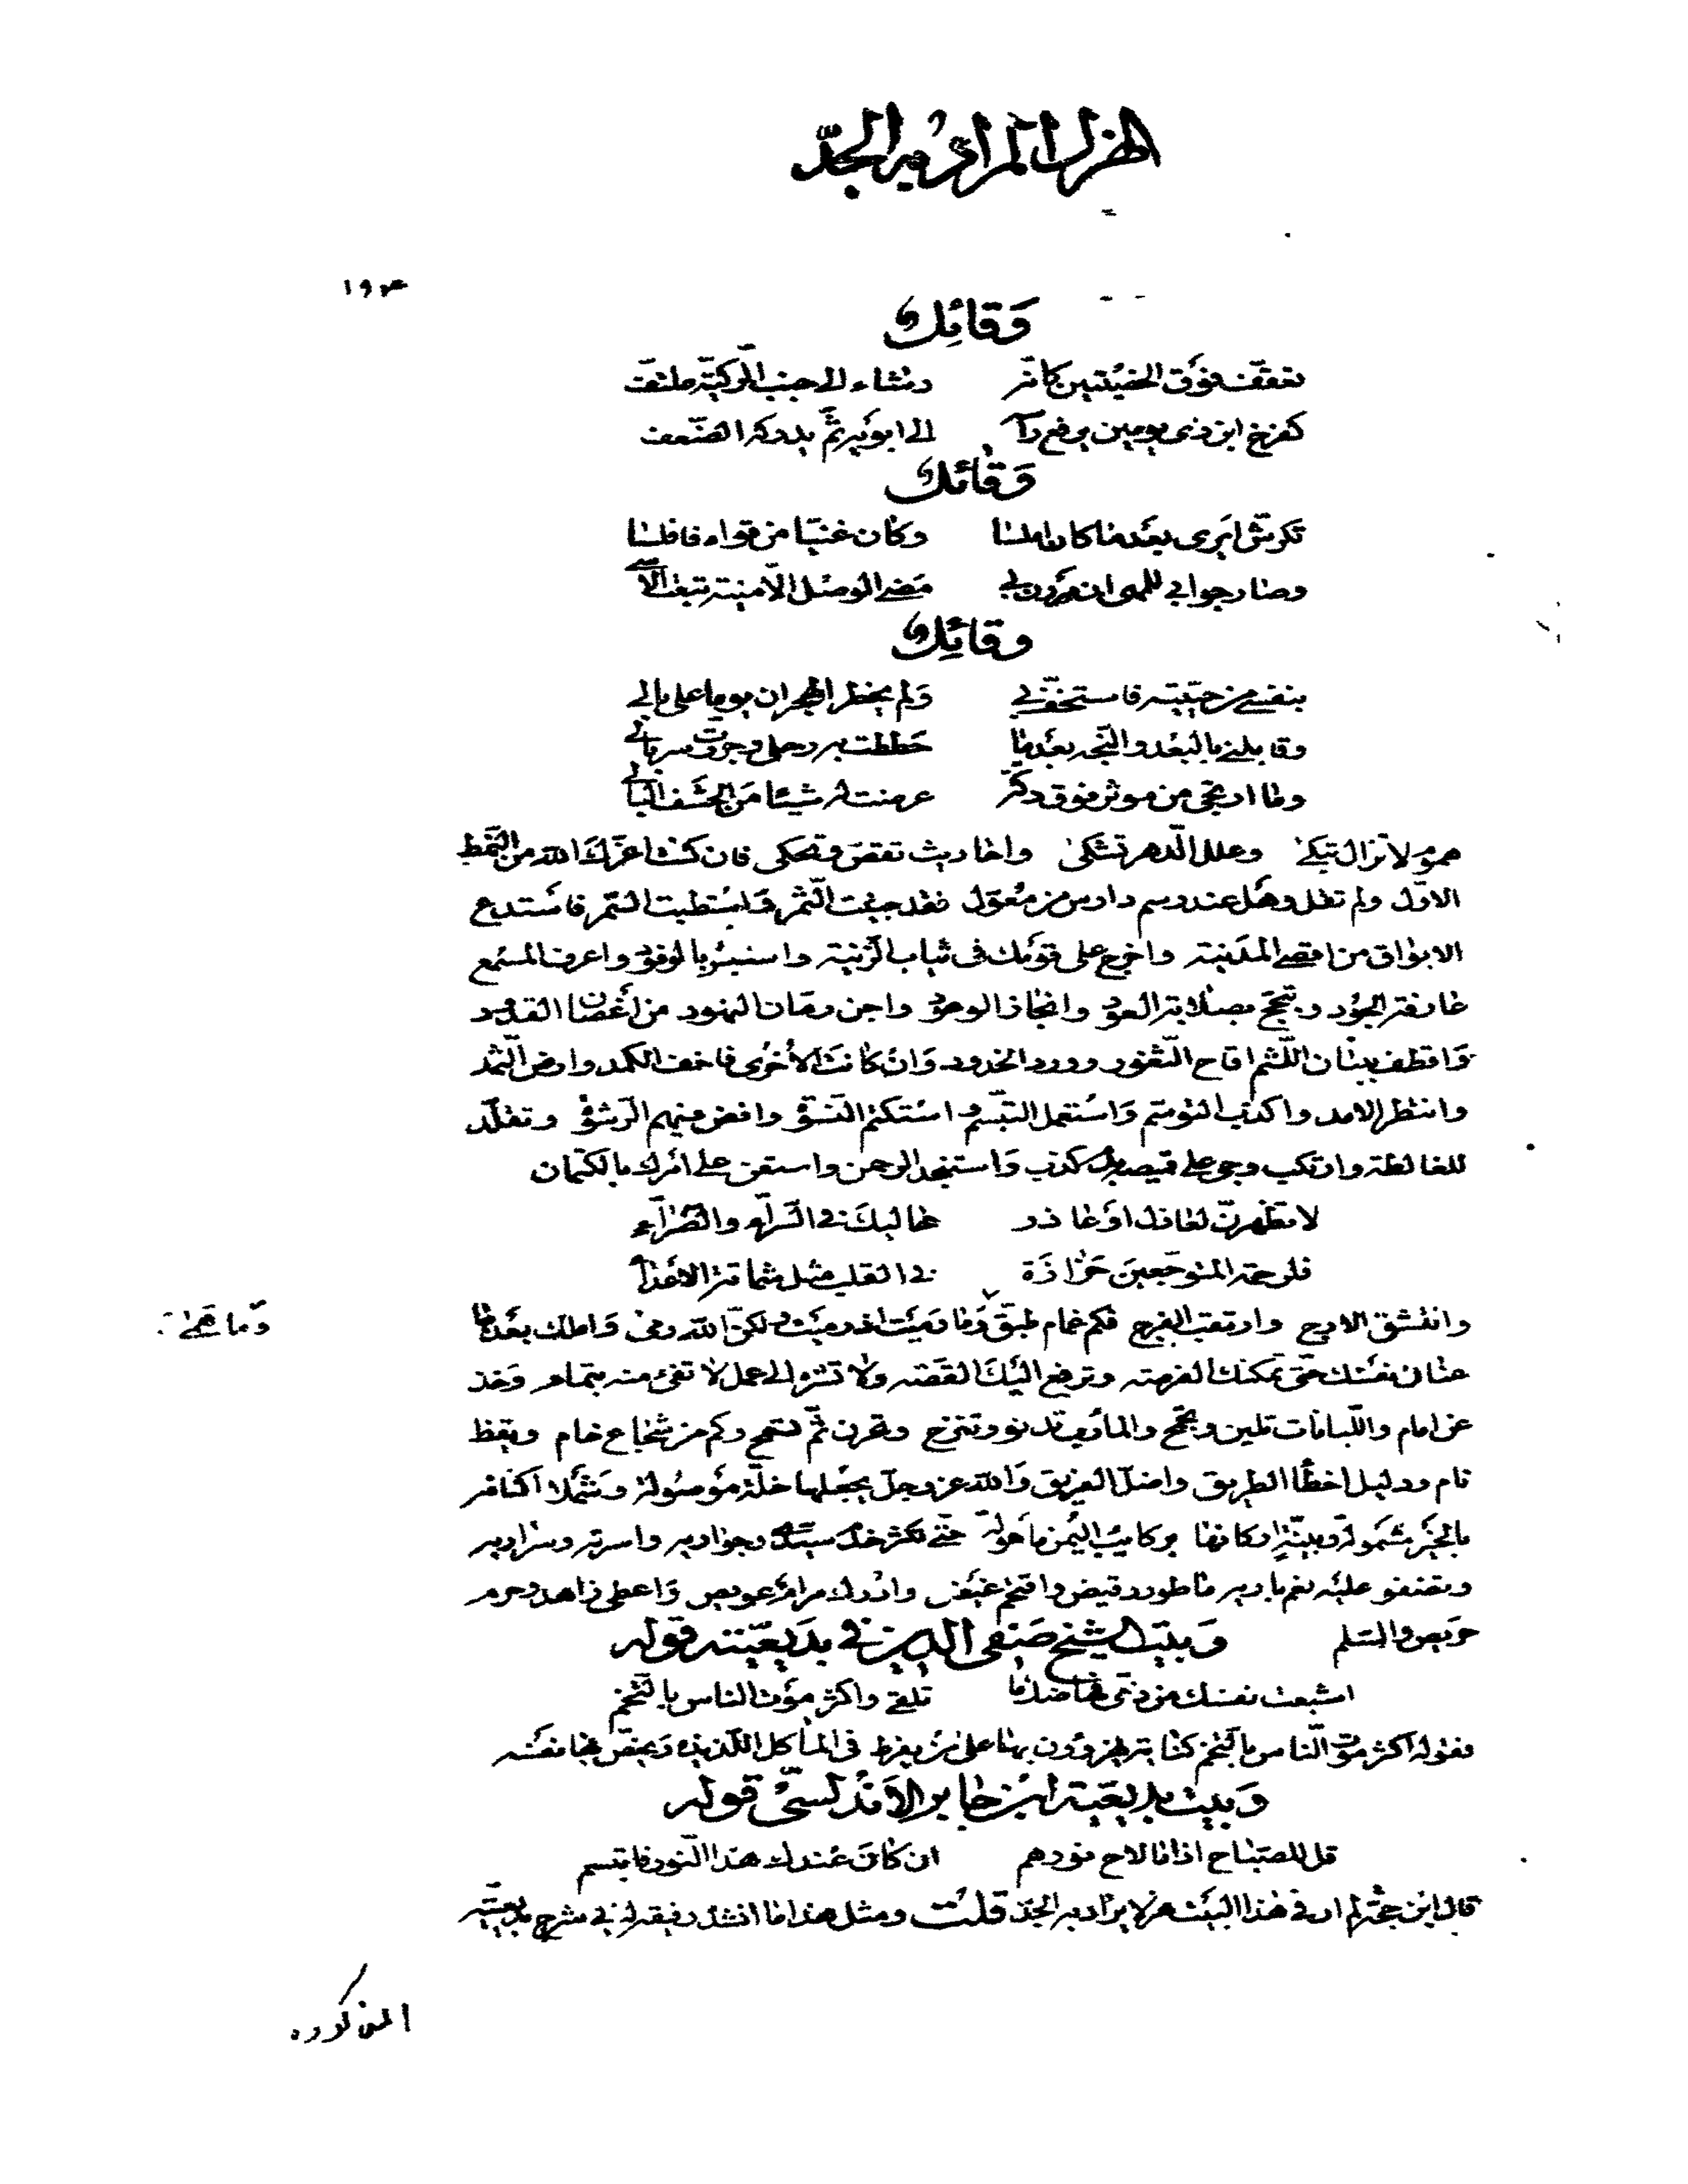 الهزل المراد به الجدّ
١٩٣
وَقائلٍ
تعقّف فوق الخصيتين كانّه رشاء الى جنب الركيّة ملتف
كفرخ ابن ذى يومين يرفع رأسه الى ابويه ثمّ يدركه الضّعف
وَقائل
تكرّش ايرى بعد ما كان املسا وكان غنيّا من قواه فافلسا
وصار جوابى للمهى ان مررن بى مضى الوصل الّا منية تبعث الأسى
وقائل
بنفسى من حيّيته فاستخفّ بى وَلم يخطر الهجران يوما على بالى
وقابلنى بالبعد والتّجه بعد ما حططت به رحلى وجردت سربالى
وما ارتجى من موثر فوق دكّة عرضت له شيئا من الحشف البالى
هموم لا تزال تبكى وعلل الدّهر تشكى واحاديث تقصّ وتحكى فان كنت اعزّك الله من النّمط
الاوّل ولم تقل وهل عند رسم دارس من معوّل فقد جنيت الثّمر وَاستطبت السّمر فاستدع
الابواق من اقصى المدينة واخرج على قومك فى ثياب الزّينة واستبشر بالوفود واعرف المسمع
عارفة الجود وتبجّح بصلابة العود وانجاز الوعود واجن رمّان النهود من أغصان القدود
وَاقطف ببنان اللّثم اقاح الثّغور وورد الخدود وَان كانت الأخرى فاخف الكمد وارض الثّمد
وانتظر الامد واكذب التوسّم وَاستعمل التبسّم واستكتم النّسوة وافض فيهم الرّشوة وتقلّد
المغالطة وارتكب وجئ على قميصه بدم كذب وَاستنجد الرحمن واستعن على امرك بالكتمان
لا تظهرنّ لعاذل او عاذر حاليك فى السّرّاء والضّرّاء
فلرحمة المتوجّعين حَزازة فى القلب مثل شماتة الاعداء
وانتشق الارج وارتقب الفرج فكم غمام طبق وَما رميت اذ رميت ولكنّ الله رمى وَاملك بعدها
وَما همى
عنان نفسك حتّى تمكنك الفرصة وترفع اليك القصّة ولا تشره الى عمل لا تفئ منه بتمام وَخذ
عن امام واللّبانات تلين وتجمح والمارب تدنو وتنزح وتحرن ثمّ تسمح وكم من شجاع خام ويقظ
نام ودليل اخطأ الطريق واضلّ الفريق وَالله عزّ وجلّ يجعلها خلّة موصولة وَشملا اكنافه
بالخير مشمولة وبنيّة اركانها بركائب اليمن مأهولة حتّى تكثر خدم سيّدى وجواريه واسرته وسراريه
وتضفو عليه نعم باريه ما طورد قنيص واقتحم عيص وادرك مرام عويص وَاعطى زاهد وحرم
حريص والسّلم وَبيت الشيخ صَفى الدين فى بديعيّته قوله
اشبعت نفسك من ذمّى فهاضك ما تلقى واكثر موت الناس بالتّخم
فقوله اكثر موت النّاس بالتّخم كناية يهزؤون بها على من يفرط فى المآكل اللّذيذه وَيخصّ بها نفسه
وَبيت بديعيّة ابن جابر الاندلسىّ قوله
قل للصّباح اذا ما لاح نورهم ان كان عندك هذا النّور فابتسم
قال ابن حجّة لم ار فى هذا البيت هزلا يراد به الجدّ قلت ومثل هذا ما انشده رفيقه له فى شرح بديعيّته
المذكوره